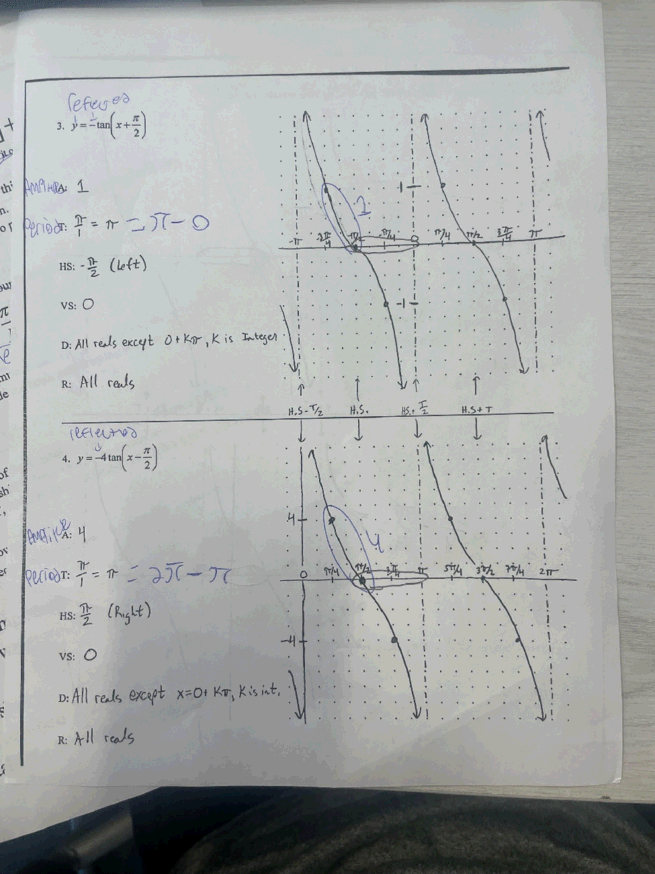 reflected
3. y = -tan(x + π/2)
Amplitude A: 1
Period T: π/1 = π = π - 0
HS: -π/2 (Left)
VS: 0
D: All reals except 0 + Kπ, K is Integer
R: All reals
1
1
-π -3π/4 -π/2 -π/4 0 π/4 π/2 3π/4 π
-1
H.S - T/2 H.S. H.S + T/2 H.S + T
reflected
4. y = -4tan(x - π/2)
A: 4
Period T: π/1 = π = 2π - π
HS: π/2 (Right)
VS: 0
D: All reals except x = 0 + Kπ, K is int.
R: All reals
4
4
0 π/4 π/2 3π/4 π 5π/4 3π/2 7π/4 2π
-4